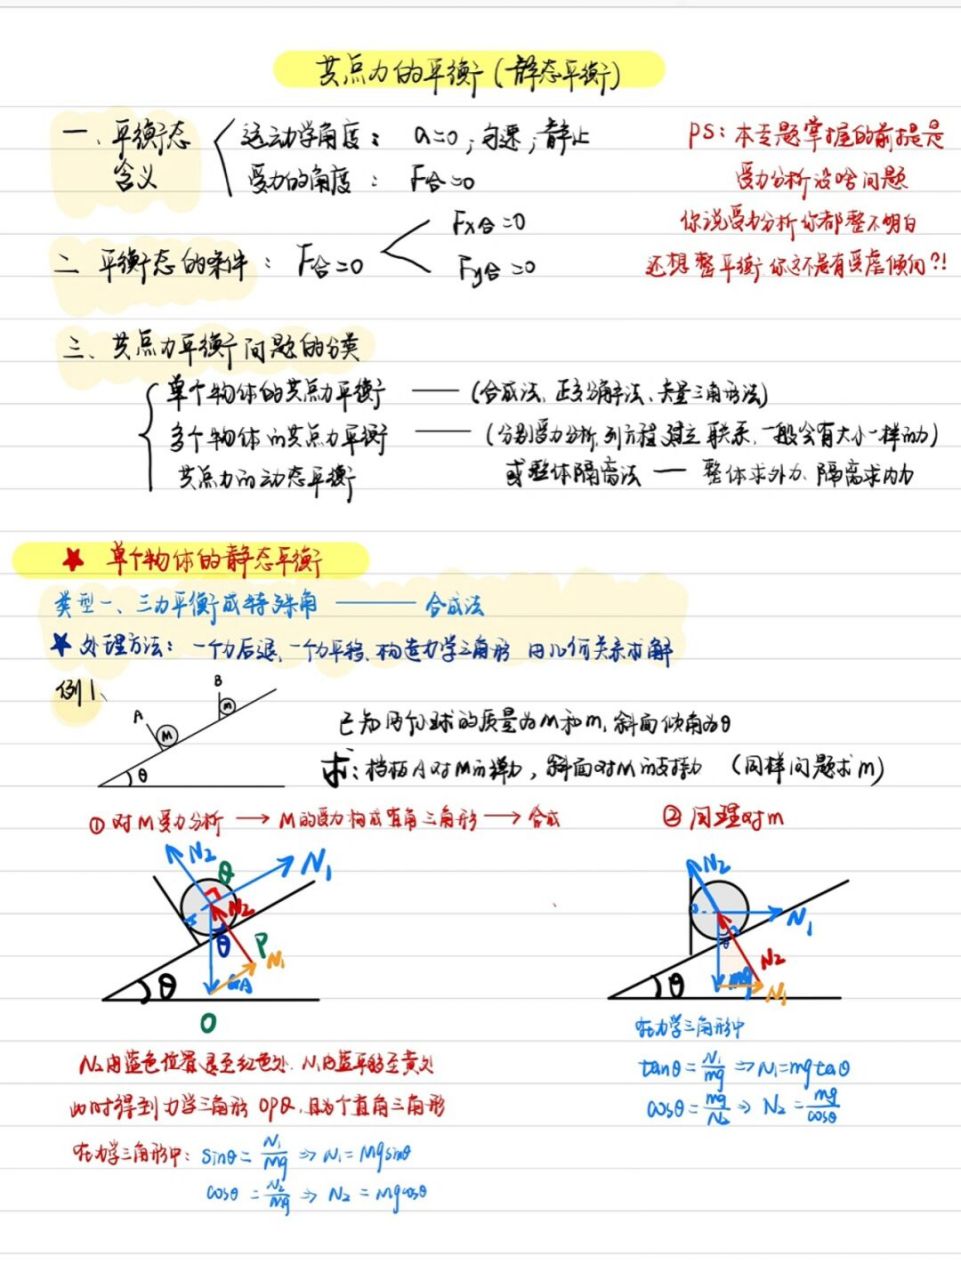 共点力的平衡(静态平衡)
一、平衡态含义
运动学角度: a=0, 匀速, 静止
受力的角度: F合=0
PS: 本专题掌握的前提是
受力分析没啥问题
你说受力分析你都整不明白
还想整平衡 你这不是有受虐倾向?!
二 平衡态的条件: F合=0
Fx合=0
Fy合=0
三、共点力平衡问题的分类
单个物体的共点力平衡 —— (合成法、正交分解法、矢量三角形法)
多个物体的共点力平衡 —— (分别受力分析,列方程建立联系,一般会有大小一样的力)
或整体隔离法 — 整体求外力、隔离求内力
共点力的动态平衡
★ 单个物体的静态平衡
类型一、三力平衡或特殊角 —— 合成法
★ 处理方法: 一个力后退、一个力平移、构造力学三角形 用几何关系求解
例1、
A M B m θ
已知两个球的质量为M和m,斜面倾角为θ
求: 挡板A对M的弹力, 斜面对M的支持力 (同样问题求m)
① 对M受力分析 → M的受力构成直角三角形 → 合成
② 同理对m
N2 Q N1
N2 θ P N1
θ O
N2 N1
mg N2 N1
θ
N2由蓝色位置退至红色处、N1由蓝平移至黄处
此时得到力学三角形OPQ、且为个直角三角形
在力学三角形中: sinθ = N1/Mg ⇒ N1 = Mgsinθ
cosθ = N2/Mg ⇒ N2 = Mgcosθ
在力学三角形中
tanθ = N1/mg ⇒ N1 = mgtanθ
cosθ = mg/N2 ⇒ N2 = mg/cosθ